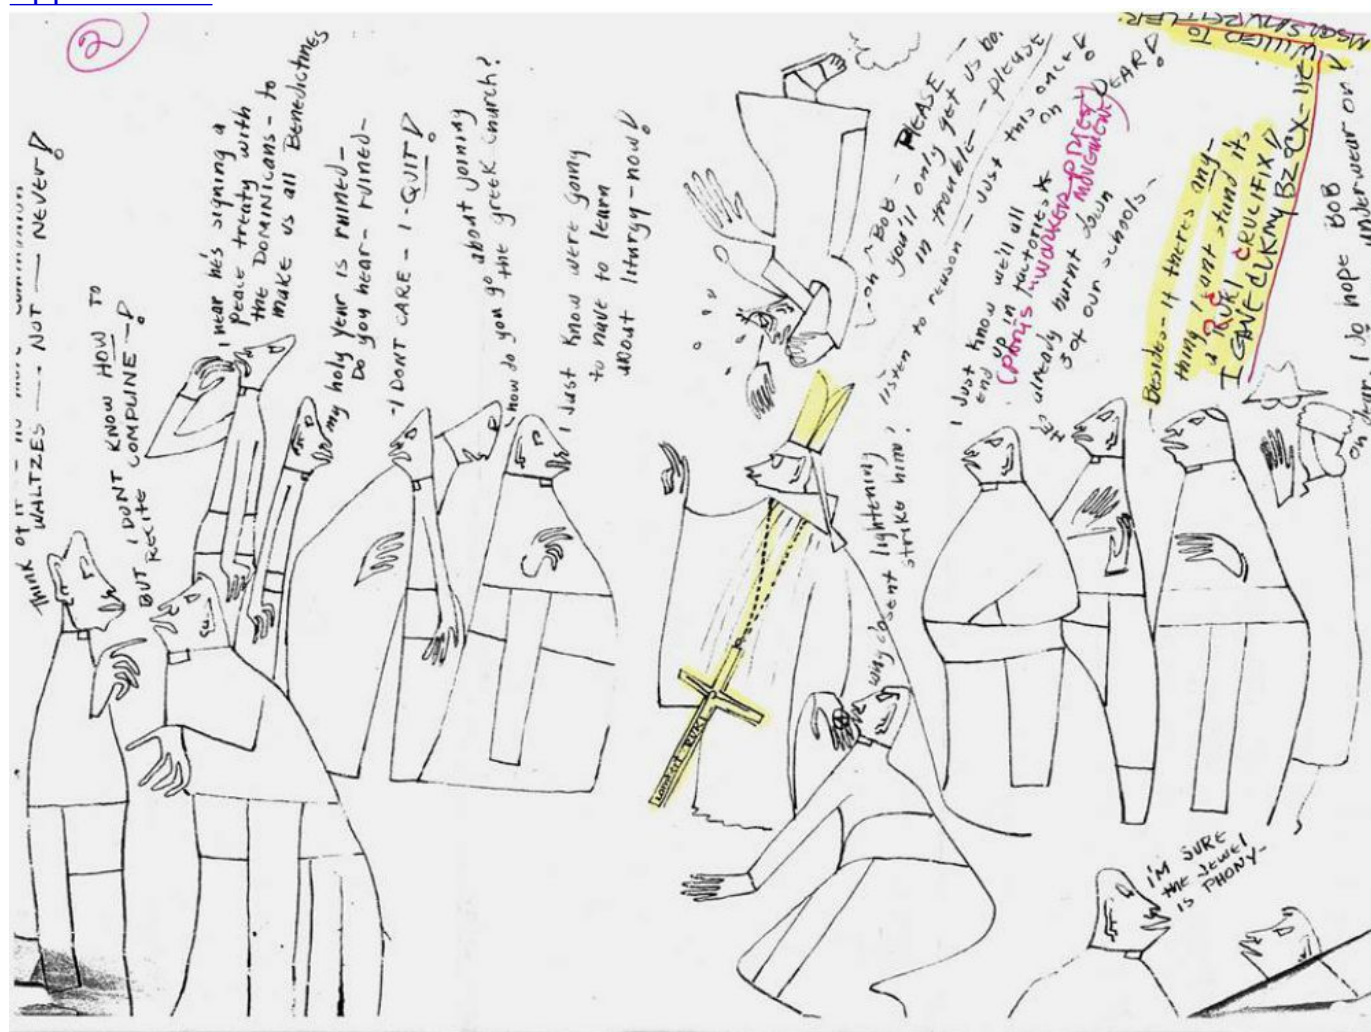 2
THINK OF IT - NO MORE COMMUNION
WALTZES —— NOT —— NEVER!
I DONT KNOW HOW TO
BUT RECITE COMPLINE -!
I hear he's signing a
peace treaty with
the DOMINICANS - to
make us all Benedictines
my holy year is ruined -
Do you hear - ruined -
-I DONT CARE - I - QUIT!
how do you go about joining
the greek church?
I Just Know were going
to have to learn
about liturgy - now!
- oh ~ BOB - PLEASE -
you'll only get us bo.
in trouble - please
listen to reason - Just this once!
why dosent lightening
strike him?
LONDSIT RUKI
I Just Know we'll all
end up in factories *
(PARIS WORKER PRIEST MOVEMENT)
HES already burnt down
3 of our schools - ON DEAR!
- Besides - If theres any-
thing I cant stand its
a RUKI CRUCIFIX!
I GAVE
WILLED TO
oh dear, I do hope BOB
under-wear on!
I'M SURE
the Jewel
is PHONY -